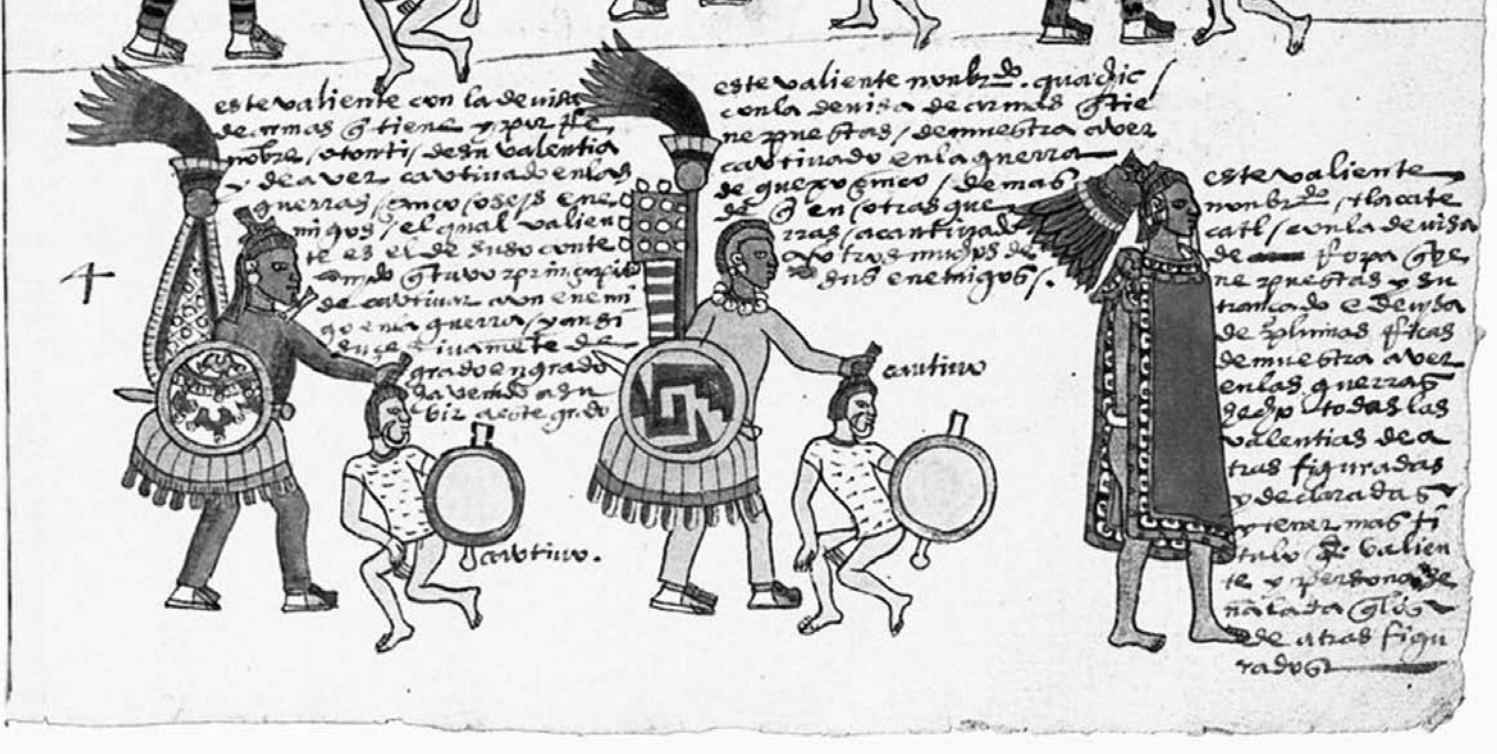 este valiente con la devisa
de armas q̃ tiene y por
nõbre / otonti / de su valentia
y de aver cavtivado en las
guerras / çinco / o seys ene
migos / el qual valien
te es el de suso conte
q̃ tuvo prinçipio
de cavtivar a un enemi
go en la guerra / y ansi
suçesivamẽte de
grado en grado
ha venido a su
bir a este grado
4
cavtivo.
este valiente nonbrado. quachic /
con la devisa de armas q̃ tie
ne puestas / demuestra aver
cavtivado en la guerra
de guexoçinco / demas
de q̃ en / otras gue
rras / a cavtivado
a otros muchos de
sus enemigos /.
cavtivo
este valiente
nonbrado / tlacate
catl / con la devisa
de ropa q̃ tie
ne puestas y su
trançado e devisa
de plumas ricas
demuestra aver
en las guerras
hecho todas las
valentias de a
tras figuradas
y declaradas
y tener mas ti
tulo de valien
te y persona se
ñalada q̃ los
de atras figu
rados